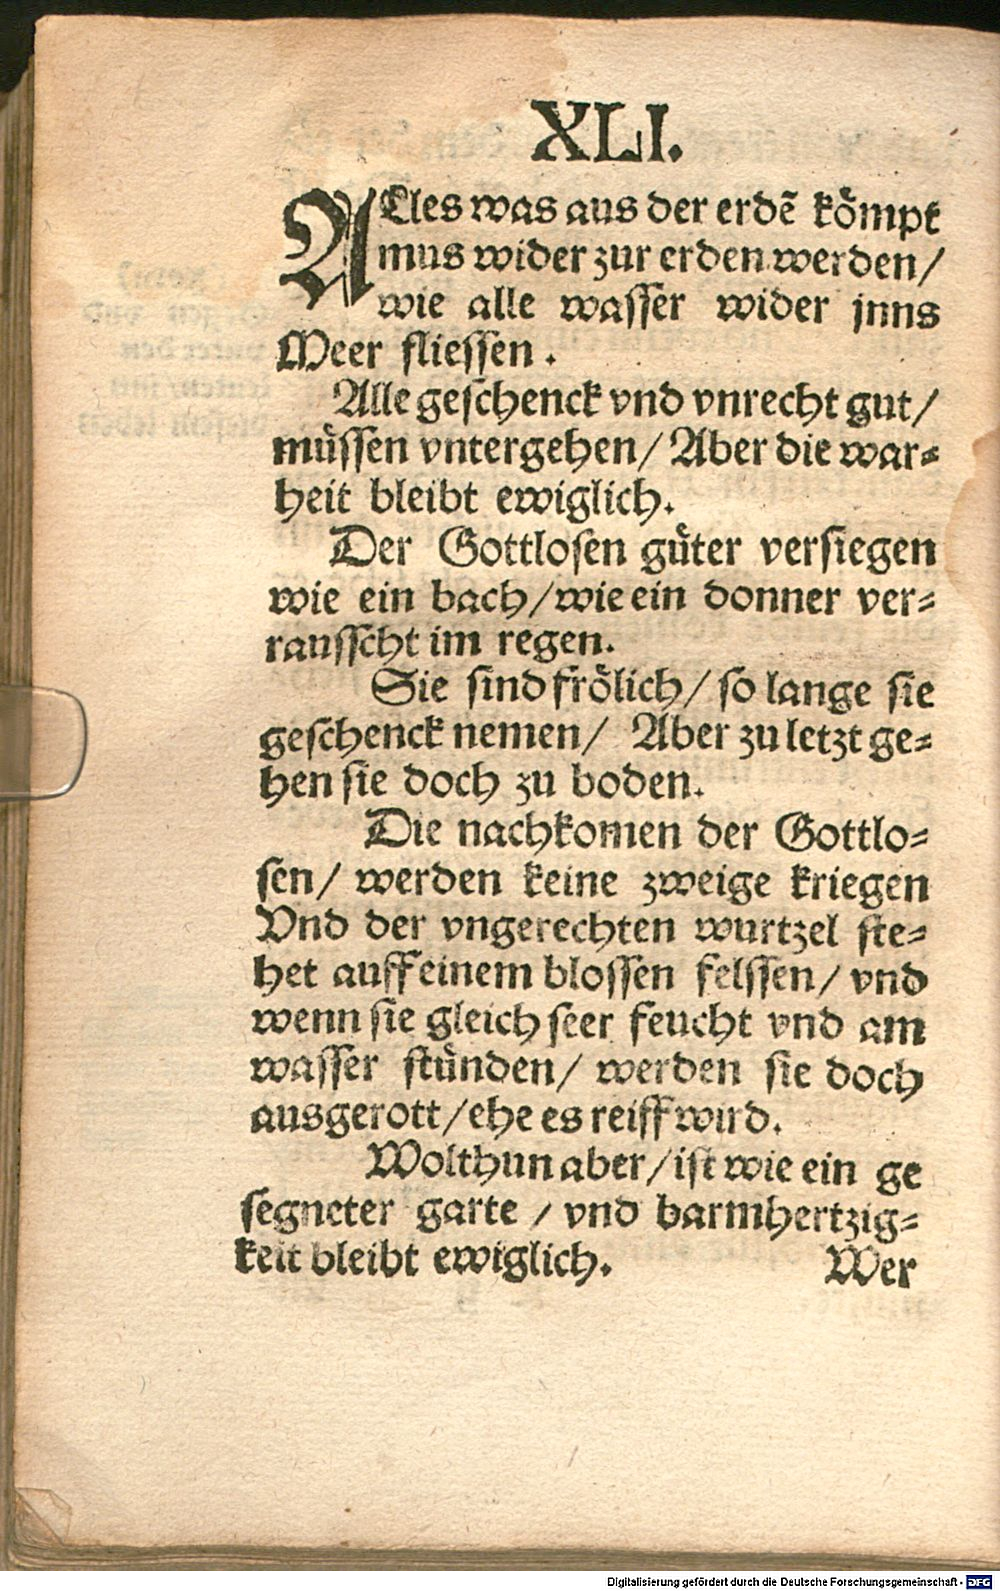 XLI.
ALles was aus der erdẽ kömpt
mus wider zur erden werden/
wie alle wasser wider jnns
Meer fliessen.
Alle geschenck vnd vnrecht gut/
müssen vntergehen/ Aber die war⸗
heit bleibt ewiglich.
Der Gottlosen güter versiegen
wie ein bach/wie ein donner ver⸗
rausscht im regen.
Sie sind frölich/ so lange sie
geschenck nemen/ Aber zu letzt ge⸗
hen sie doch zu boden.
Die nachkomen der Gottlo⸗
sen/ werden keine zweige kriegen
Vnd der vngerechten wurtzel ste⸗
het auff einem blossen felssen/ vnd
wenn sie gleich seer feucht vnd am
wasser stünden/ werden sie doch
ausgerott/ehe es reiff wird.
Wolthun aber/ist wie ein ge
segneter garte / vnd barmhertzig⸗
keit bleibt ewiglich.
Wer
Digitalisierung gefördert durch die Deutsche Forschungsgemeinschaft - DFG